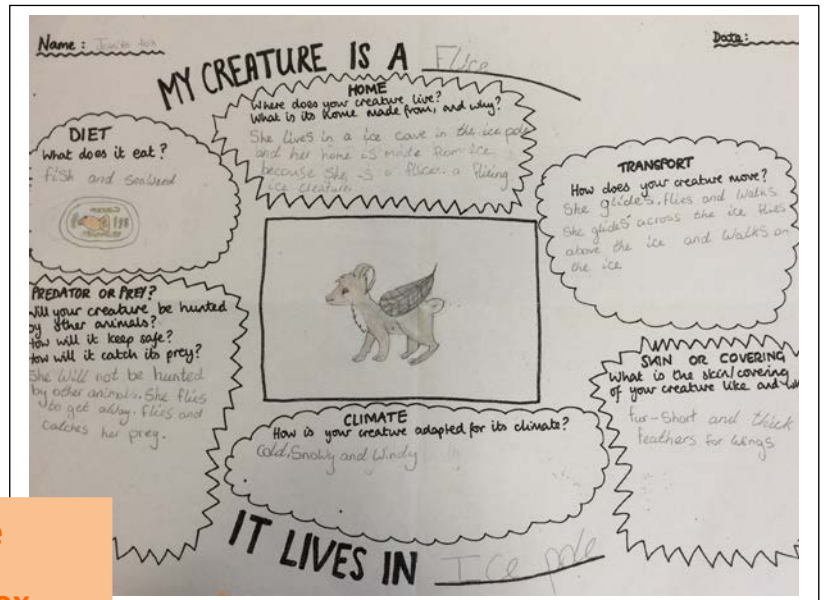 Name :
Date:
MY CREATURE IS A Flice
HOME
Where does your creature live?
What is its home made from, and why?
She Lives in a ice cave in the ice pole
and her home is made from ice
because She is a flice. a
ice creature.
DIET
What does it eat?
fish and seaweed
TRANSPORT
How does your creature move?
She glides, flies and walks.
She glides across the ice flies
above the ice and walks on
the ice
PREDATOR OR PREY?
Will your creature be hunted
by other animals?
How will it keep safe?
How will it catch its prey?
She will not be hunted
by other animals. She flies
to get away. flies and
catches her prey.
SKIN OR COVERING
What is the skin/covering
of your creature like and
fur-Short and thick
feathers for wings
CLIMATE
How is your creature adapted for its climate?
Cold, Snowy and Windy
IT LIVES IN Ice pole